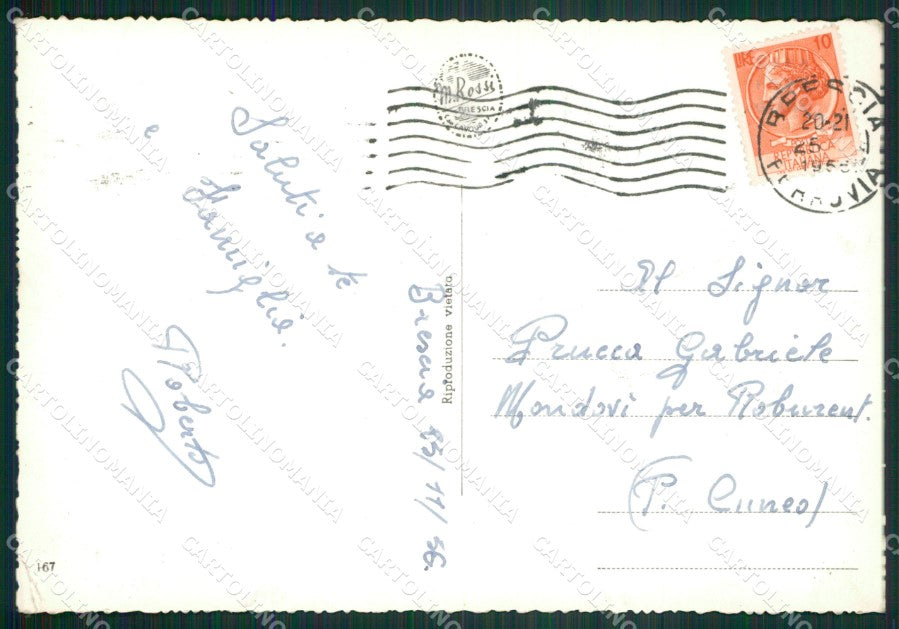 Saluti a te
e
Famiglia.
Roberto
Brescia 25/11/56.
Riproduzione vietata
M. Rossi
BRESCIA
LIRE 10
REPUBBLICA
ITALIANA
BRESCIA
20-21
25
FERROVIA
Al Signor
Prucca Gabriele
Mondovì per Roburent.
(P. Cuneo)
167
CARTOLINOMANIA